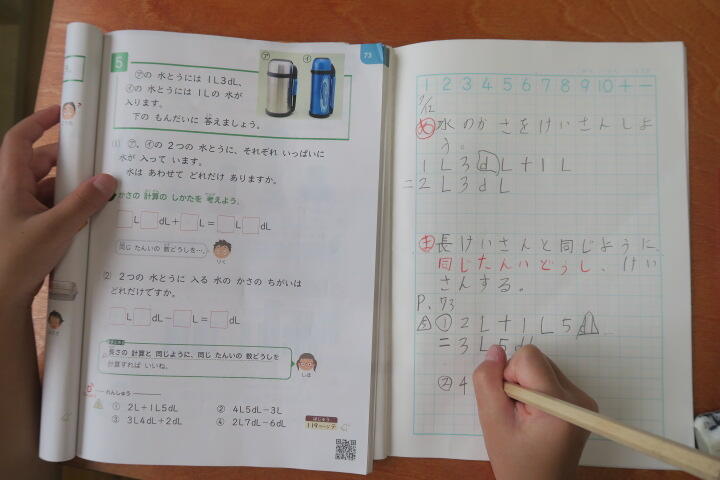 73
5
㋐の 水とうには 1L3dL、
㋑の 水とうには 1Lの 水が
入ります。
下の もんだいに 答えましょう。
㋐
㋑
① ㋐、㋑の 2つの 水とうに、それぞれ いっぱいに
水が 入って います。
水は あわせて どれだけ ありますか。
かさの 計算の しかたを 考えよう。
□L□dL+□L=□L□dL
同じ たんいの 数どうしを…。
りく
② 2つの 水とうに 入る 水の かさの ちがいは
どれだけですか。
□L□dL-□L=□dL
長さの 計算と 同じように、同じ たんいの 数どうしを
計算すれば いいね。
しほ
れんしゅう
① 2L+1L5dL
② 4L5dL-3L
③ 3L4dL+2dL
④ 2L7dL-6dL
ほじゅう
119ページ
1 2 3 4 5 6 7 8 9 10 + -
7/12
め 水のかさをけいさんしよ
う。
1L3dL+1L
=2L3dL
ま 長けいさんと同じように、
同じたんいどうし、けい
さんする。
P.73
① 2L+1L5dL
=3L5dL
② 4